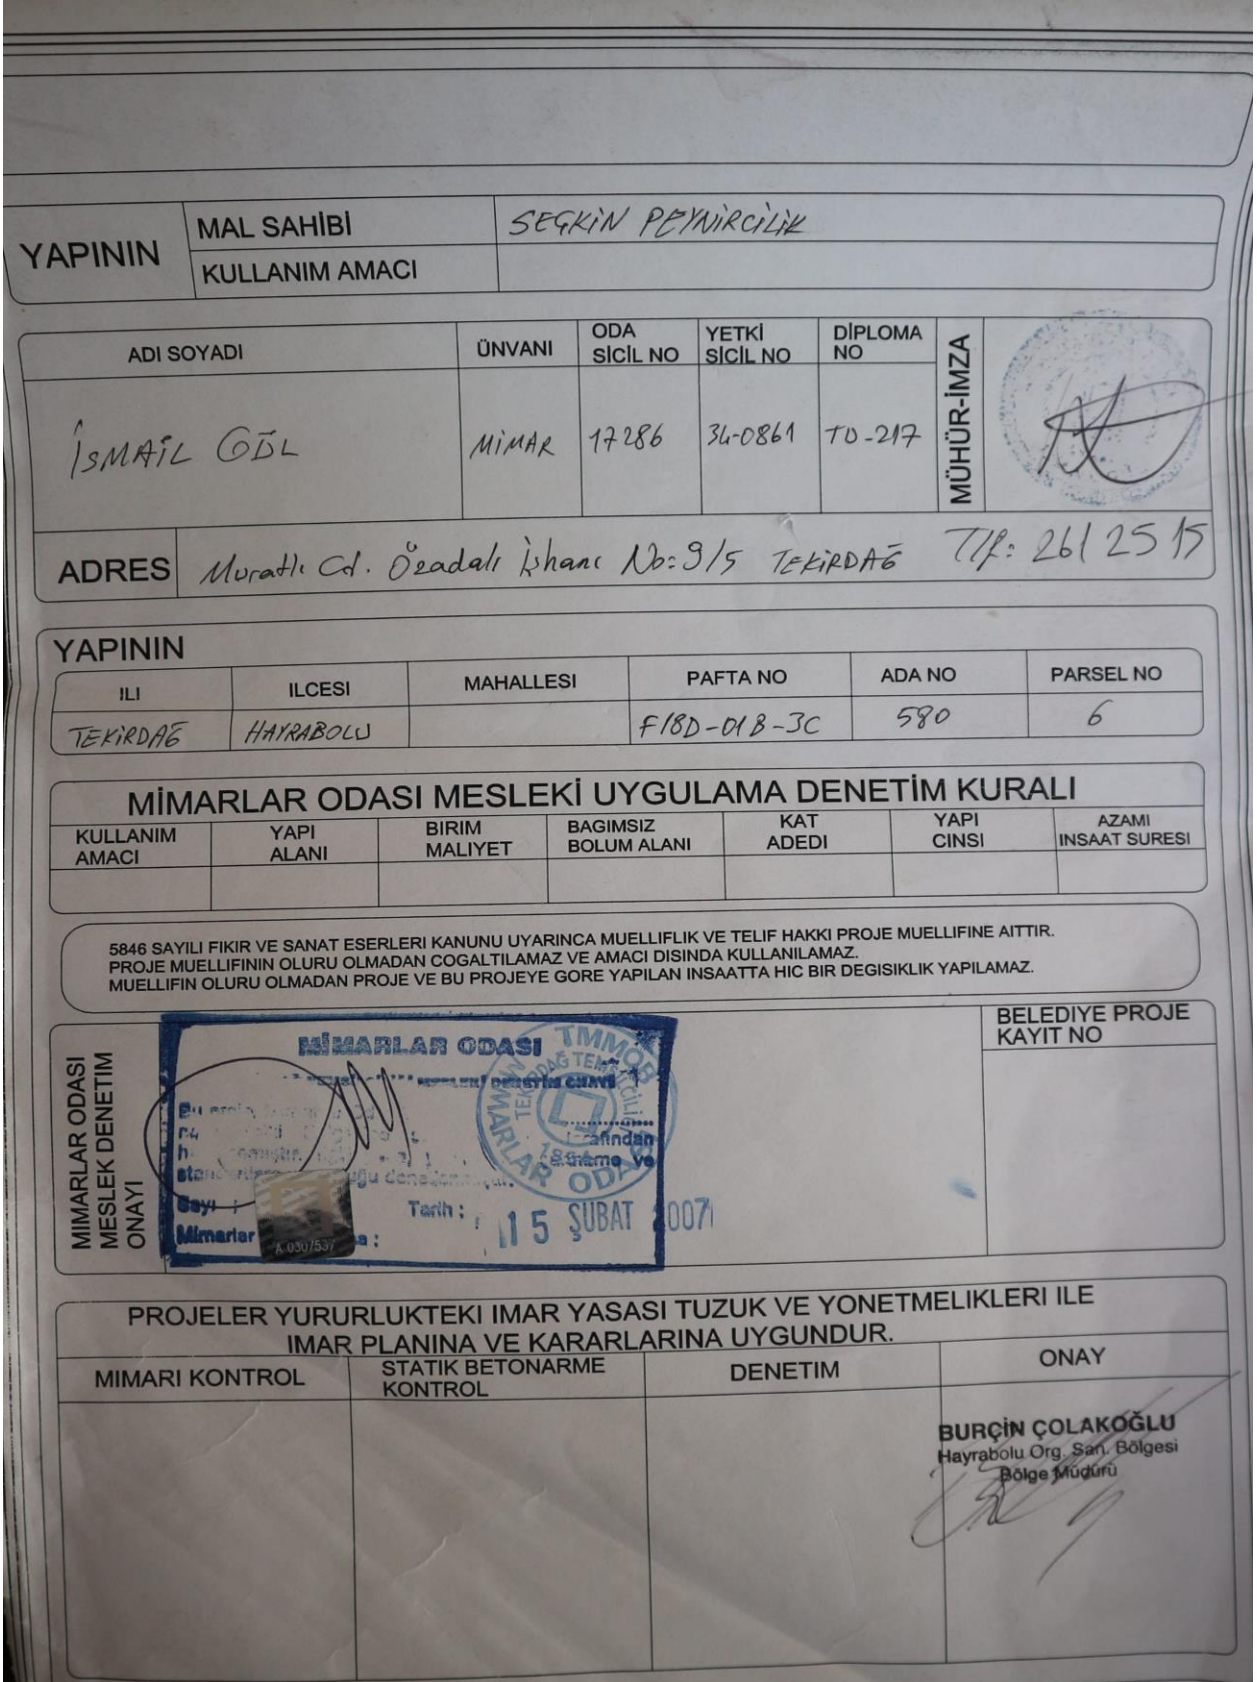 YAPININ
MAL SAHİBİ
SEÇKİN PEYNİRCİLİK
KULLANIM AMACI
ADI SOYADI
ÜNVANI
ODA SİCİL NO
YETKİ SİCİL NO
DİPLOMA NO
MÜHÜR-İMZA
İSMAİL
MİMAR
17286
34-0861
TD-217
ADRES
Muratlı Cd. Özadalı İşhanı No: 9/5 TEKİRDAĞ Tlf: 261 25 15
YAPININ
ILI
ILCESI
MAHALLESI
PAFTA NO
ADA NO
PARSEL NO
TEKİRDAĞ
HAYRABOLU
F18D-01B-3C
580
6
MİMARLAR ODASI MESLEKİ UYGULAMA DENETİM KURALI
KULLANIM AMACI
YAPI ALANI
BIRIM MALIYET
BAGIMSIZ BOLUM ALANI
KAT ADEDI
YAPI CINSI
AZAMI INSAAT SURESI
5846 SAYILI FIKIR VE SANAT ESERLERI KANUNU UYARINCA MUELLIFLIK VE TELIF HAKKI PROJE MUELLIFINE AITTIR.
PROJE MUELLIFININ OLURU OLMADAN COGALTILAMAZ VE AMACI DISINDA KULLANILAMAZ.
MUELLIFIN OLURU OLMADAN PROJE VE BU PROJEYE GORE YAPILAN INSAATTA HIC BIR DEGISIKLIK YAPILAMAZ.
MIMARLAR ODASI
MESLEK DENETIM
ONAYI
MİMARLAR ODASI
TMMOB
MİMARLAR ODASI
Bu
tarafından
ve
Sayı :
Tarih :
15 ŞUBAT 2007
Mimarlar
A 0307537
BELEDIYE PROJE
KAYIT NO
PROJELER YURURLUKTEKI IMAR YASASI TUZUK VE YONETMELIKLERI ILE
IMAR PLANINA VE KARARLARINA UYGUNDUR.
MIMARI KONTROL
STATIK BETONARME KONTROL
DENETIM
ONAY
BURÇİN ÇOLAKOĞLU
Hayrabolu Org. San. Bölgesi
Bölge Müdürü